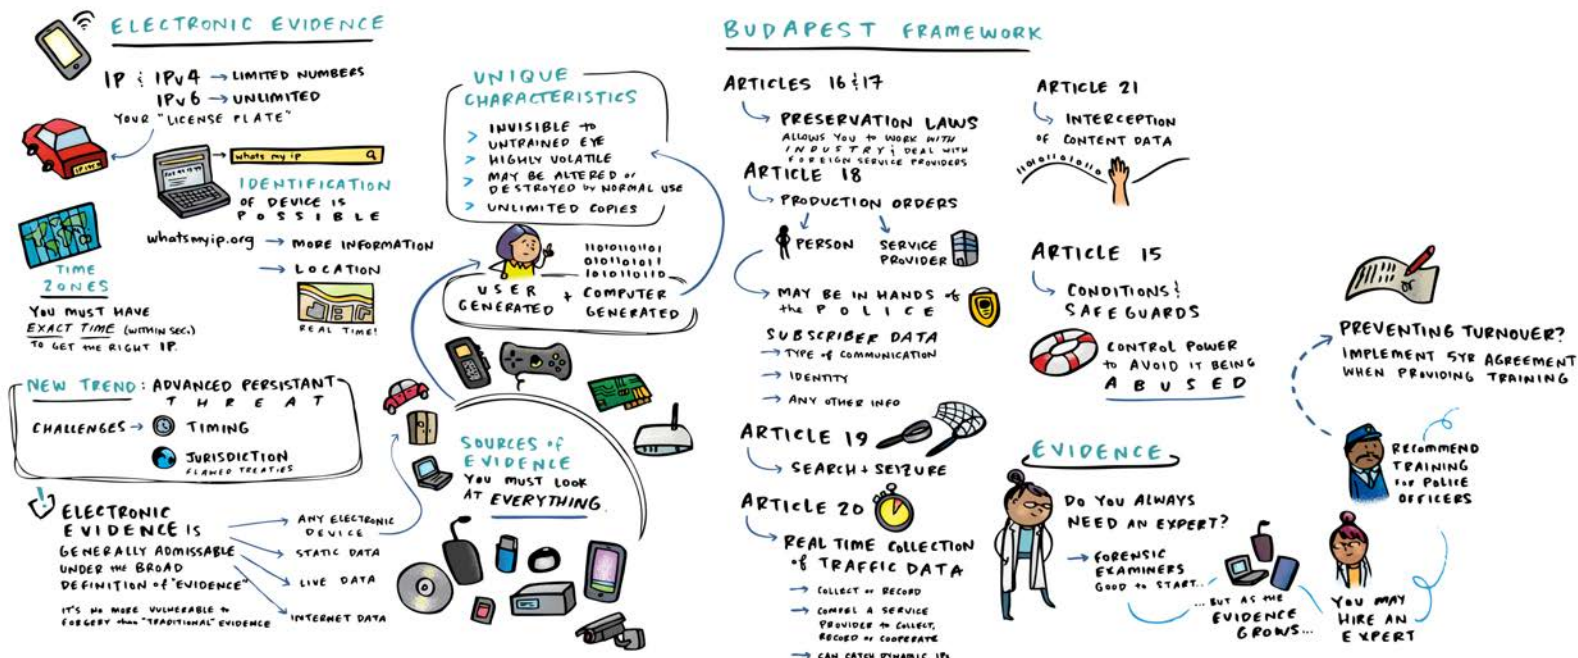 ELECTRONIC EVIDENCE
IP & IPv4 → LIMITED NUMBERS
IPv6 → UNLIMITED
YOUR "LICENSE PLATE"
whats my ip
IDENTIFICATION
OF DEVICE IS
POSSIBLE
whatsmyip.org → MORE INFORMATION
→ LOCATION
REAL TIME!
TIME
ZONES
YOU MUST HAVE
EXACT TIME (WITHIN SEC.)
TO GET THE RIGHT IP.
NEW TREND: ADVANCED PERSISTANT
THREAT
CHALLENGES → TIMING
JURISDICTION
FLAWED TREATIES
ELECTRONIC
EVIDENCE IS
GENERALLY ADMISSABLE
UNDER THE BROAD
DEFINITION of "EVIDENCE"
IT'S NO MORE VULNERABLE to
FORGERY than "TRADITIONAL" EVIDENCE
ANY ELECTRONIC
DEVICE
STATIC DATA
LIVE DATA
INTERNET DATA
UNIQUE
CHARACTERISTICS
> INVISIBLE to
UNTRAINED EYE
> HIGHLY VOLATILE
> MAY BE ALTERED or
DESTROYED by NORMAL USE
> UNLIMITED COPIES
11010110101
0101101011
1010110110
USER
GENERATED
+ COMPUTER
GENERATED
SOURCES of
EVIDENCE
YOU MUST LOOK
AT EVERYTHING.
BUDAPEST FRAMEWORK
ARTICLES 16 & 17
PRESERVATION LAWS
ALLOWS YOU to WORK WITH
INDUSTRY & DEAL WITH
FOREIGN SERVICE PROVIDERS
ARTICLE 18
PRODUCTION ORDERS
PERSON
SERVICE
PROVIDER
MAY BE IN HANDS of
the POLICE
SUBSCRIBER DATA
→ TYPE of COMMUNICATION
→ IDENTITY
→ ANY OTHER INFO
ARTICLE 19
SEARCH + SEIZURE
ARTICLE 20
REAL TIME COLLECTION
of TRAFFIC DATA
→ COLLECT or RECORD
→ COMPEL A SERVICE
PROVIDER to COLLECT,
RECORD or COOPERATE
→ CAN CATCH DYNAMIC IPs
ARTICLE 21
INTERCEPTION
OF CONTENT DATA
ARTICLE 15
CONDITIONS &
SAFEGUARDS
CONTROL POWER
to AVOID IT BEING
ABUSED
EVIDENCE
DO YOU ALWAYS
NEED AN EXPERT?
→ FORENSIC
EXAMINERS
GOOD to START...
...BUT AS THE
EVIDENCE
GROWS...
YOU MAY
HIRE AN
EXPERT
RECOMMEND
TRAINING
for POLICE
OFFICERS
PREVENTING TURNOVER?
IMPLEMENT 5YR AGREEMENT
WHEN PROVIDING TRAINING